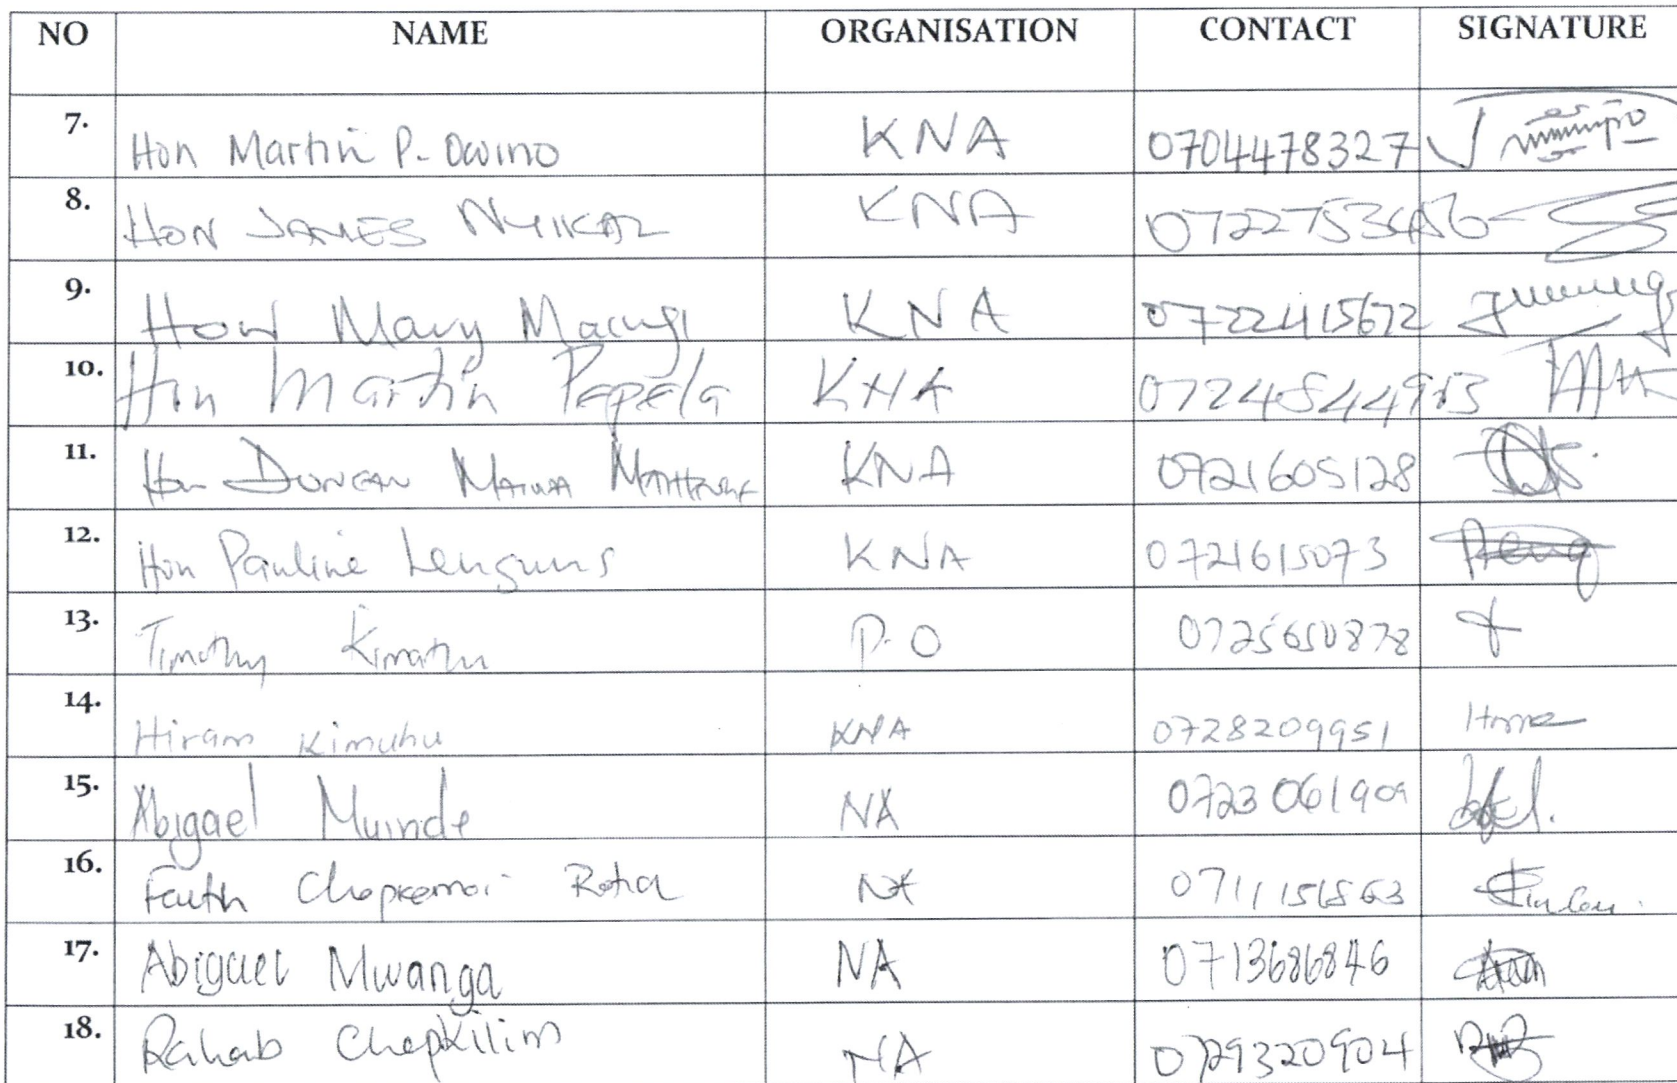 NO NAME ORGANISATION CONTACT SIGNATURE
7. Hon Martin P. Owino KNA 0704478327
8. HON JAMES NYIKAL KNA 0722753456
9. Hon Mary KNA 0722415672
10. Hon Martin Pepela KNA
11. Hon DUNCAN MAINA KNA 0721605128
12. Hon Pauline Lenguris KNA 0721615073
13. Timothy Kimathi P.O 0725650878
14. Hiram Kimuhu KNA 0728209951
15. Abigael Muinde NA 0723061909
16. Faith Chepkemoi Rotich NA
17. Abigael Mwanga NA 0713686846
18. Rahab Chepkilim NA 0729320904